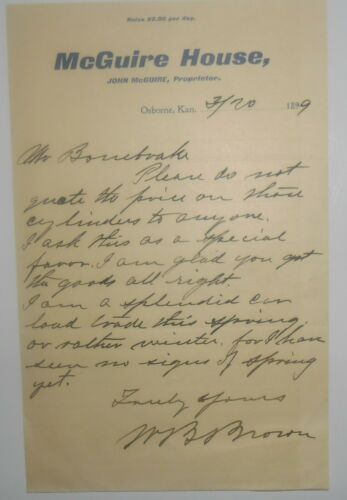 Rates $2.00 per day.
McGuire House,
JOHN McGUIRE, Proprietor.
Osborne, Kan. 3/20 1899
Mr Bonebrake
Please do not
quote the price on those
cylinders to anyone.
I ask this as a special
favor. I am glad you got
the goods all right.
I am a splendid car
load trade this spring
or rather winter. for I have
seen no signs of spring
yet.
Truly yours
W B Brown